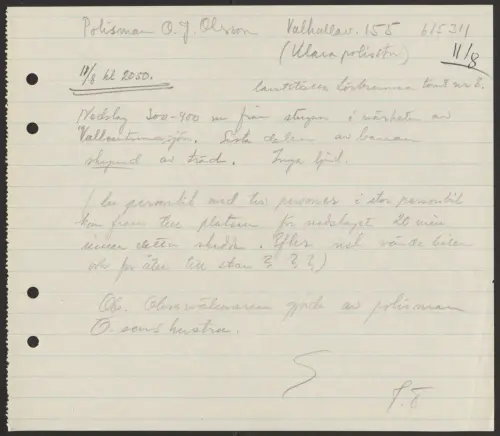 Polisman O. J. Olsson Valhallav. 155 61534
(Klara polisstn) 11/8
11/8 kl 2050.
Lantställe Lörbranna tomt nr 8.
Nedslag 300-400 m från stugan i närheten av
Vallentunasjön. Sista delen av banan
skymd av träd. Inga ljud.
( En personbil med tre personer i stor personbil
kom fram till platsen för nedslaget 20 min
innan detta skedde. Efter vände bilen
och for åter till stan ? ? ?)
Ob. Observationerna gjorda av polisman
O. sons hustru.